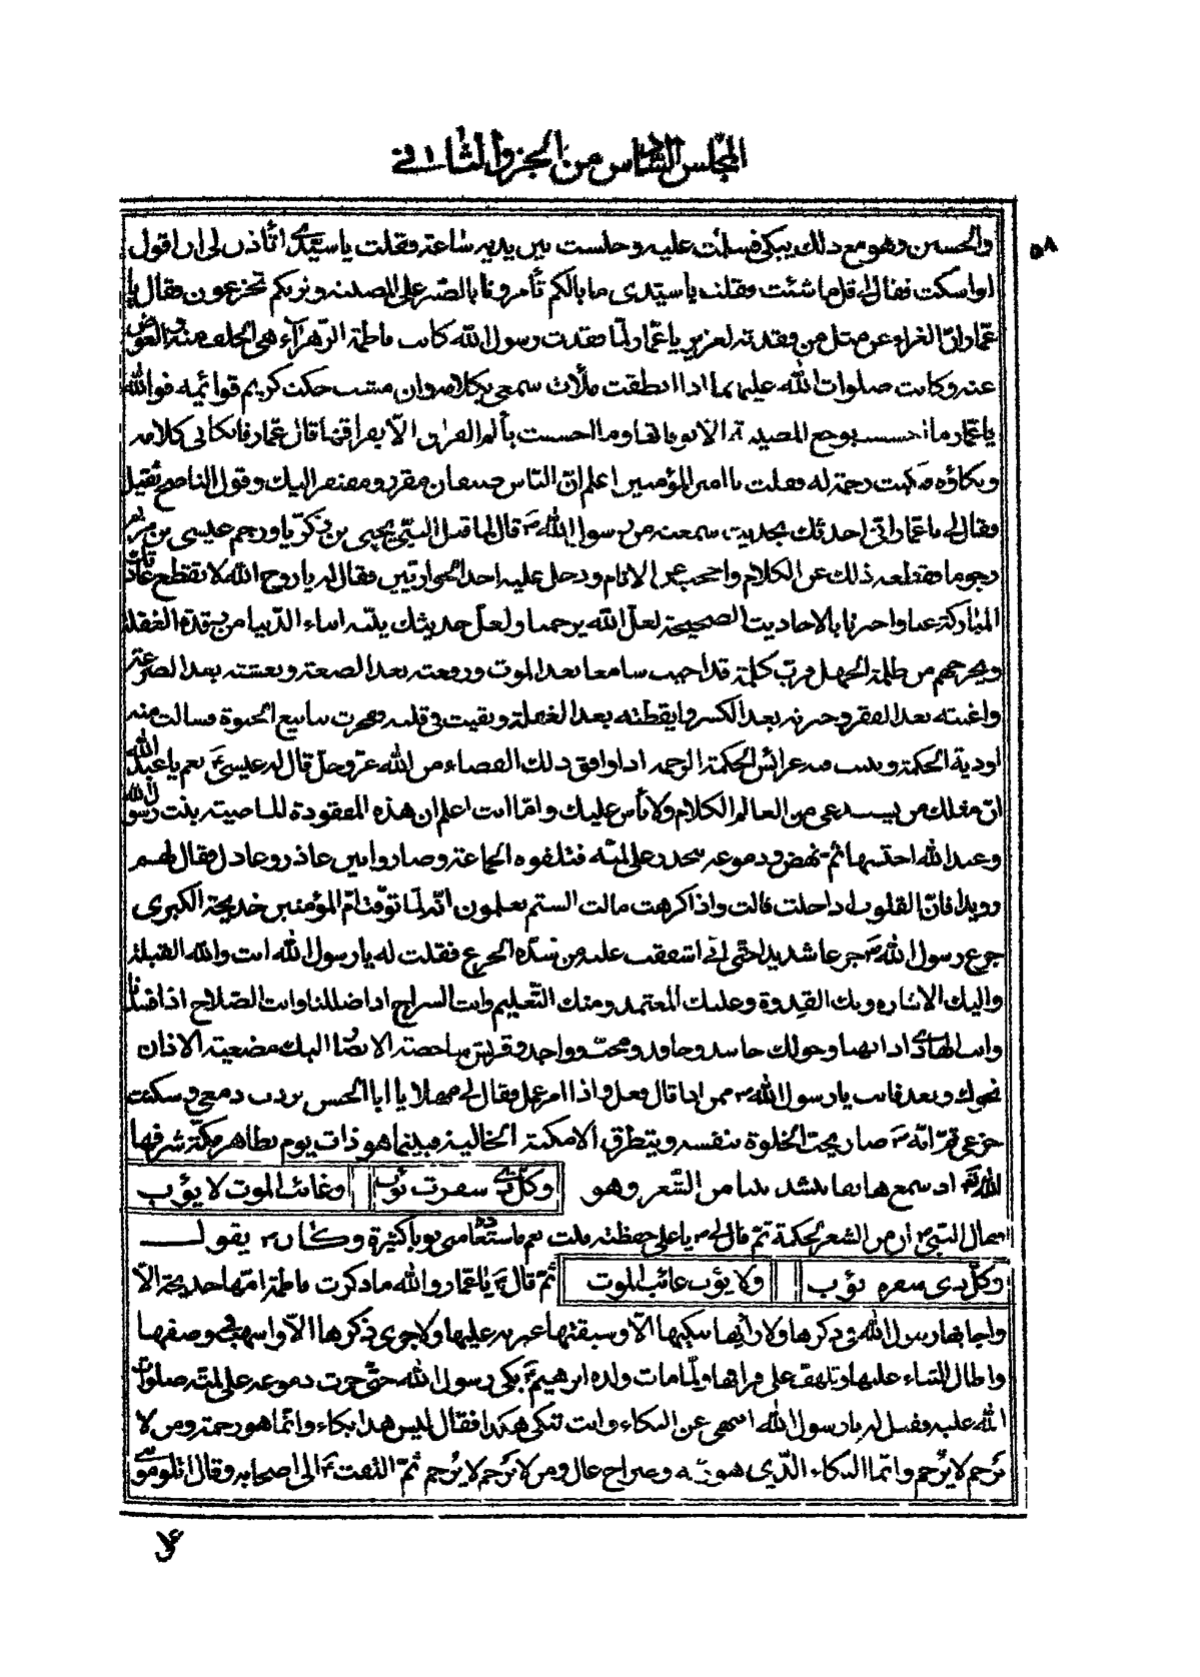 المجلس السادس من الجزو الثاني
٥٨
والحسين وهو مع ذلك يبكي فسلمت عليه وجلست بين يديه ساعة وقلت يا سيدي اتأذن لي ان اقول
او اسكت فقال لي قل ما شئت فقلت يا سيدي ما بالكم تأمرونا بالصبر على المصيبة ونريكم تجزعون فقال يا
عمار ان العزاء عن مثل من فقدته لعزيز يا عمار لما فقدت رسول الله كانت فاطمة الزهراء هي الخلف منه والعوض
عنه وكانت صلوات الله عليهما اذا نطقت ملأت سمعي بكلامه وان مشت حكت كريم قوائمه فوالله
يا عمار ما احسست بوجع المصيبة الا بوفاتها وما احسست بألم الفراق الا بفراقها قال عمار فابكاني كلامه
وبكاؤه فبكيت رحمة له فقلت يا امير المؤمنين اعلم ان الناس صنفان مقرد ومفتقر اليك وقول الناصح ثقيل
فقال لي يا عمار اني احدثك بحديث سمعته من رسول الله ص قال لما قتل النبي يحيى بن زكريا وجم عيسى بن مريم
وجوما فقطعه ذلك عن الكلام واحتجب عن الانام ودخل عليه احد الحواريين فقال له يا روح الله لا تقطع عاداتك
المباركة عنا واخبرنا بالاحاديث الصحيحة لعل الله يرحمنا ولعل حديثك ينبه ابناء الدنيا من رقدة الغفلة
ويخرجهم من ظلمة الجهل فرب كلمة قد احيت سامعا بعد الموت ورفعته بعد الضعة ونعشته بعد الصرعة
واغنته بعد الفقر وجبرته بعد الكسر وايقظته بعد الغفلة وبقيت في قلبه وفجرت ينابيع الحيوة فسالت منه
اودية الحكمة ونبتت فيه غرائس الحكمة الرحمة اذا وافق ذلك القضاء من الله عز وجل قال له عيسى نعم يا عبد الله
ان مثلك من يستدعي من العالم الكلام ولا بأس عليك واما انت اعلم ان هذه المفقودة الماضية بنت رسول الله
وعند الله احتسبها ثم نهض ودموعه تتحدر على لحيته فتلقوه الجماعة وصاروا بين عاذر وعاذل فقال لهم
رويدا فان القلوب اذا حلت قالت واذا كرهت مالت الستم تعلمون انه لما توفت ام المؤمنين خديجة الكبرى
جزع رسول الله ص جزعا شديدا حتى اني اشفقت عليه من شدة الجزع فقلت له يا رسول الله انت والله القبلة
واليك الاشارة وبك القدوة وعليك المعتمد ومنك التعليم وانت السراج اذا ضللنا وانت الصلاح اذا افسدنا
وانت الهادي اذا تهنا وحولك حاسد وحاقد ومحب وواجد وقريش شاخصة الابصار اليك مصغية الاذان
نحوك وبعد فانت يا رسول الله ممن اذا قال فعل واذا امر عمل فقال لي مهلا يا ابا الحسن بردت دمعي وسكنت
جزعي ثم انه ص صار يحب الخلوة بنفسه ويتطرق الامكنة الخالية فبينما هو ذات يوم بظاهر مكة شرفها
الله تعالى اذ سمع هاتفا ينشد بيتا من الشعر وهو وكل ذي سفرة يؤب وغائب الموت لا يؤب
فقال النبي ان من الشعر لحكمة ثم قال لي يا علي حفظته قلت نعم فاستعاده مني نوبا كثيرة وكان يقول
وكل ذي سفرة يؤب ولا يؤب غائب الموت ثم قال يا عمار والله ما ذكرت فاطمة امها خديجة الا
واجابها رسول الله في ذكرها ولا رأيتها تبكيها الا وسبقتها عبرته عليها ولا جرى ذكرها الا واسهب في وصفها
واطال الثناء عليها وتلهف على فراقها ولما مات ولده ابرهيم بكى رسول الله حتى جرت دموعه على لحيته صلوات
الله عليه فقيل له يا رسول الله انتهى عن البكاء وانت تبكي هكذا فقال ليس هذا بكاء وانما هو رحمة ومن لا
يرحم لا يرحم وانما البكاء الذي هو وصراخ عال ومن لا يرحم لا يرحم ثم التفت الى اصحابه وقال اتلوموني